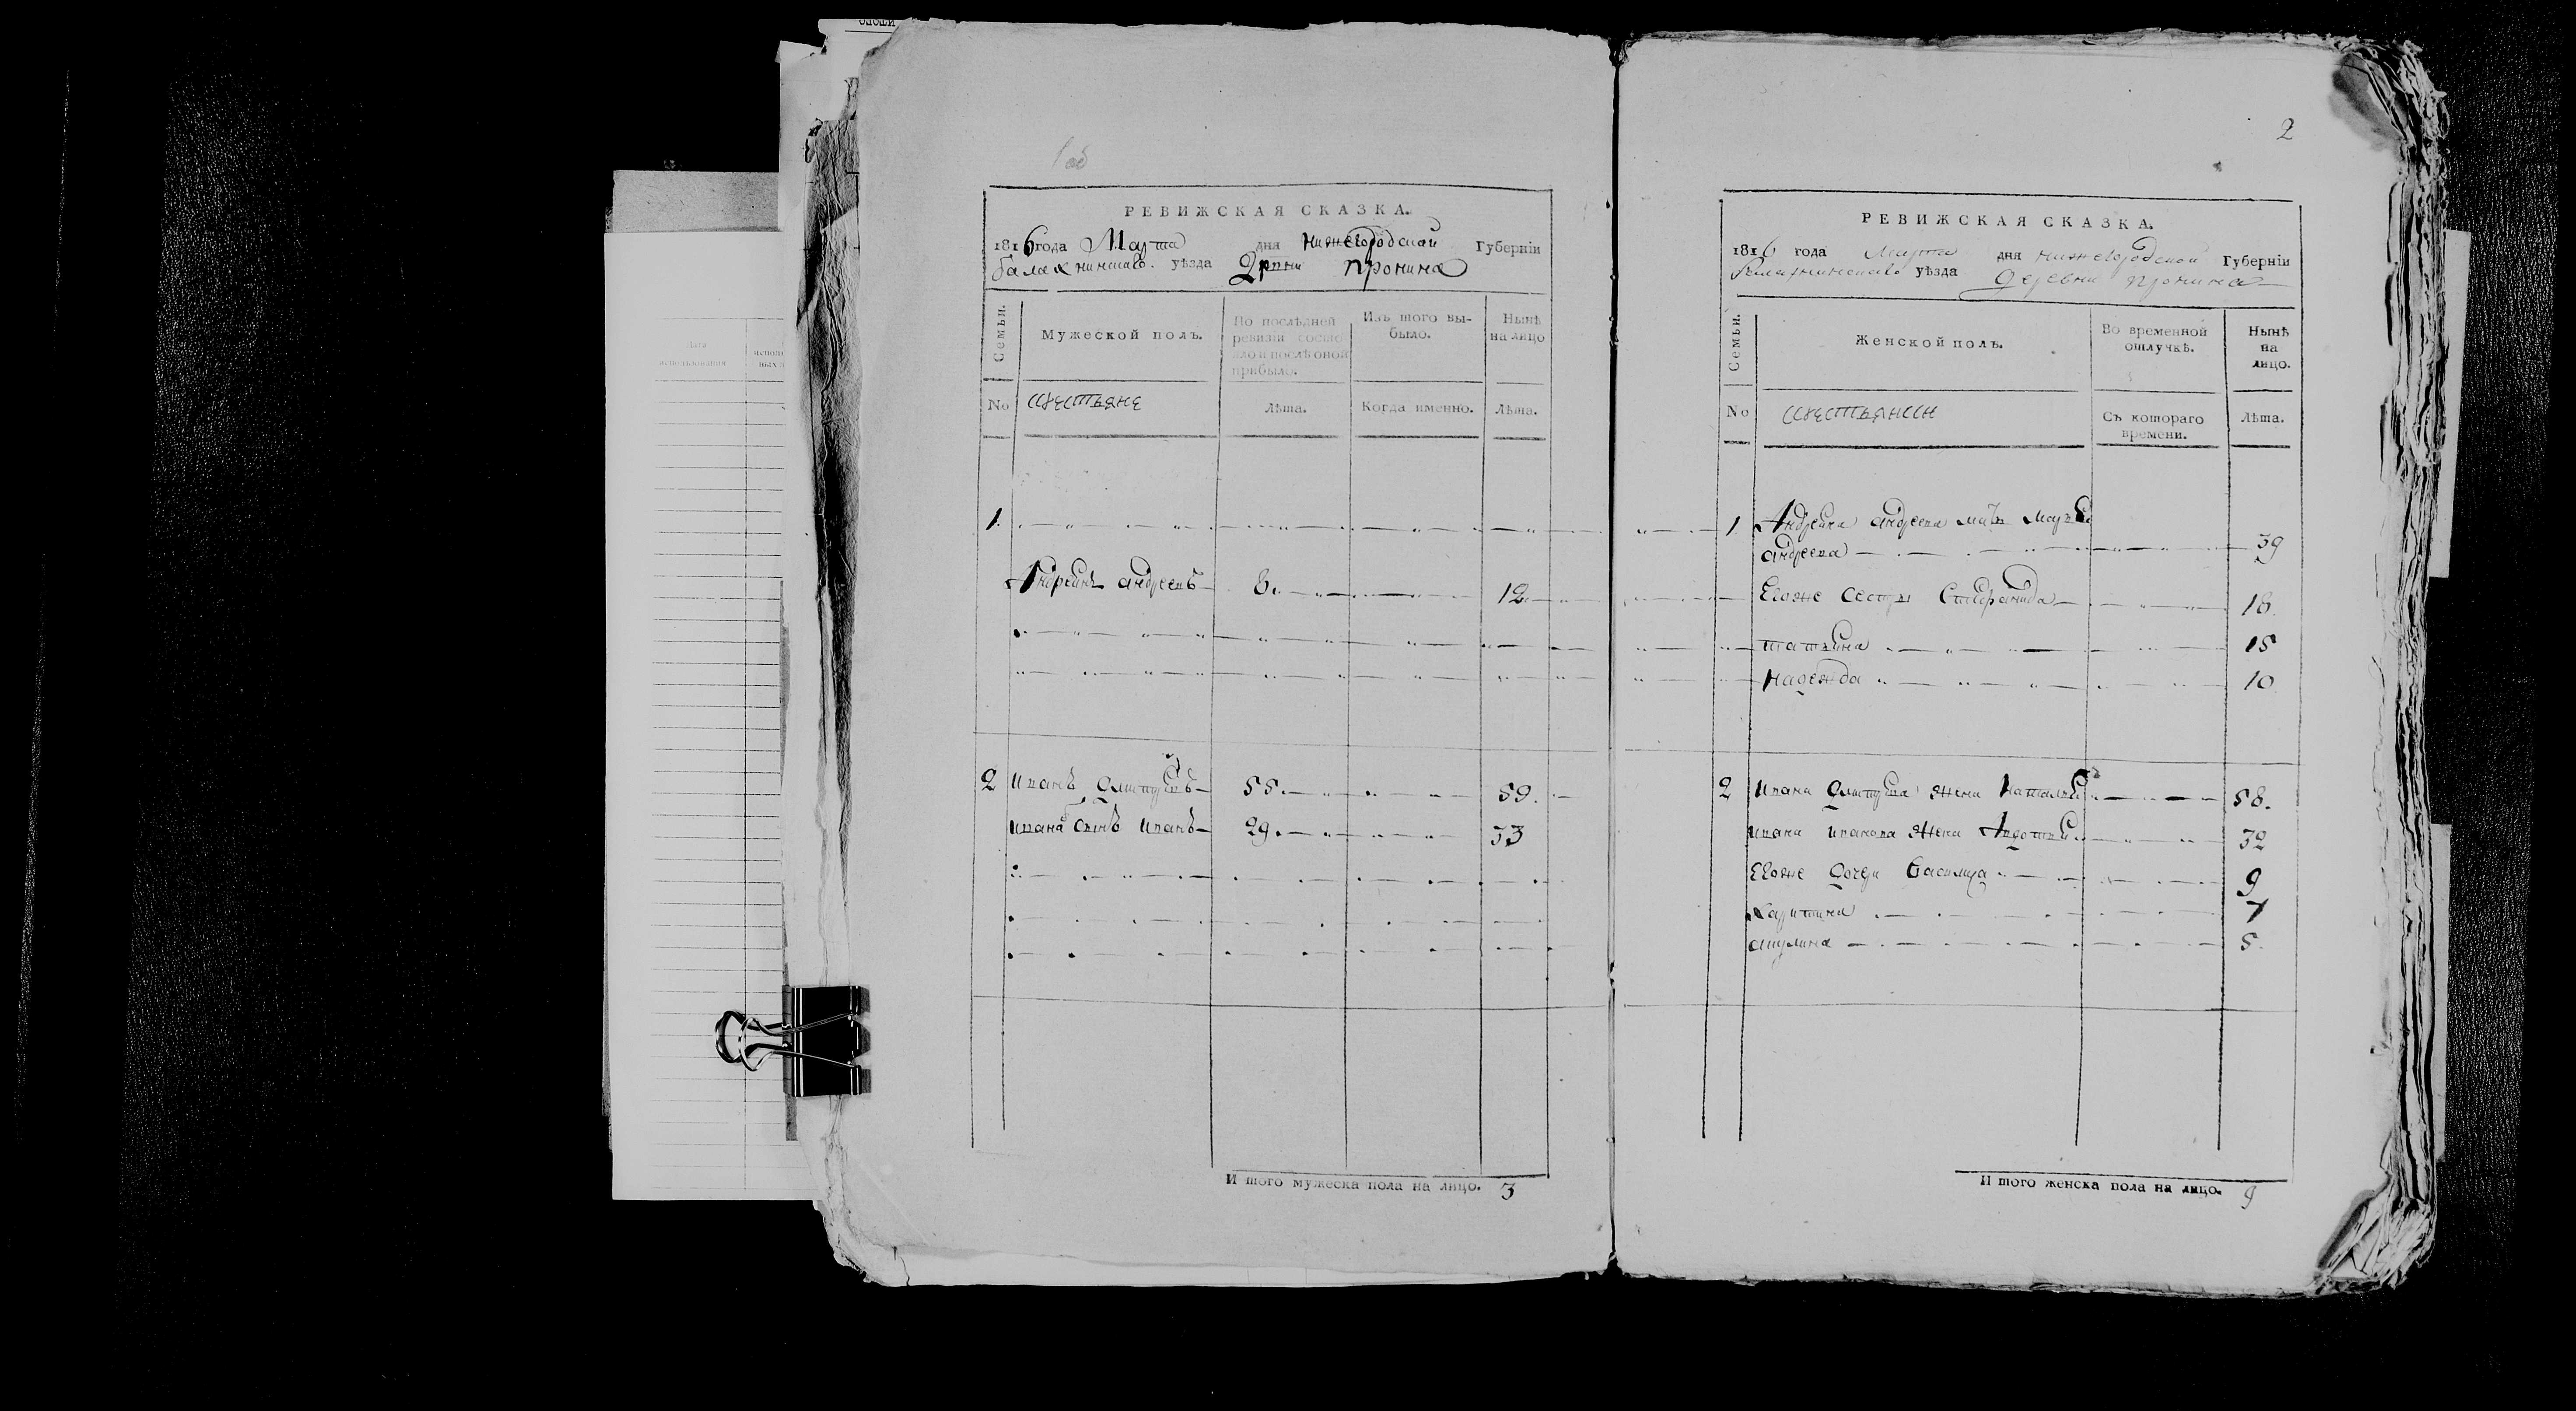 1об
РЕВИЖСКАЯ СКАЗКА.
1816 года Марта дня нижегородской Губерніи
балахнинскаго уѣзда Дрвни пронина
Семьи. Мужеской полъ. По послѣдней ревизіи состояло и послѣ оной прибыло. Изъ того выбыло. Нынѣ на лицо
No крестьяне Лѣта. Когда именно. Лѣта.
1.
Андреянъ андреевъ 8. 12.
2 иванъ 55. 59.
ивана сынъ иванъ 29. 33
И того мужеска пола на лицо. 3
2
РЕВИЖСКАЯ СКАЗКА.
1816 года Марта дня нижегородской Губерніи
Балахнинскаго уѣзда деревни пронина
Семьи. Женской полъ. Во временной отлучкѣ. Нынѣ на лицо.
No крестьянки Съ котораго времени. Лѣта.
1. Андреяна андреева мать
андреева 39
Егоже сестры Степанида 18.
татьяна 15
надежда 10
2 ивана жена наталья 58.
ивана иванова жена Авдотья 32
Егоже дочери Василиса 9
харитина 7
акулина 5.
И того женска пола на лицо. 9